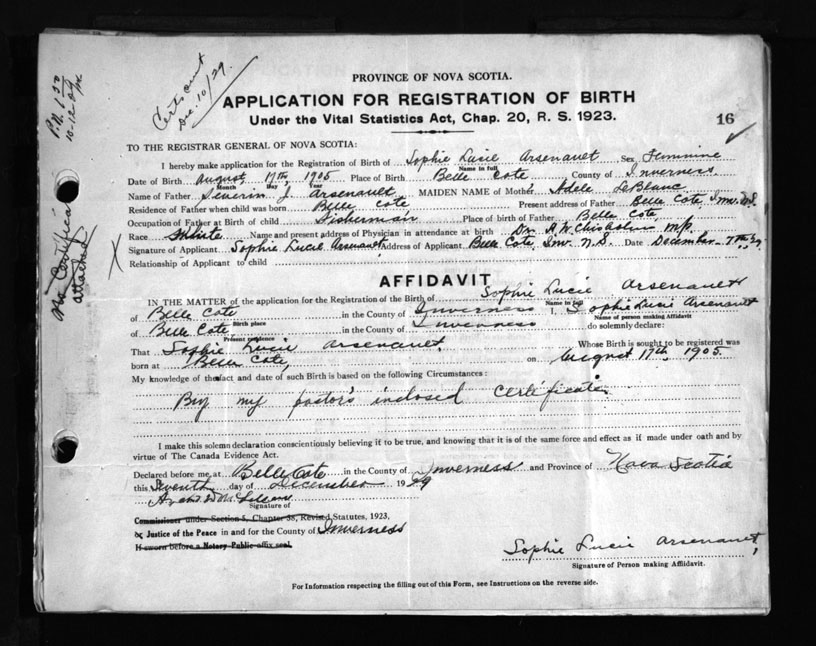 P.N. 1.50
Certs sent
Dec. 10/29.
No Certificate
attached
PROVINCE OF NOVA SCOTIA.
APPLICATION FOR REGISTRATION OF BIRTH
Under the Vital Statistics Act, Chap. 20, R. S. 1923.
16
TO THE REGISTRAR GENERAL OF NOVA SCOTIA:
I hereby make application for the Registration of Birth of Sophie Lucie Arsenault Sex Feminine
Name in full
Date of Birth August 17th, 1905 Place of Birth Belle Cote County of Inverness.
Month Day Year
Name of Father Severin J. Arsenault MAIDEN NAME of Mother Adele LeBlanc
Residence of Father when child was born Belle Cote Present address of Father Belle Cote Inv. N.S.
Occupation of Father at Birth of child Fisherman Place of birth of Father Belle Cote
Race White Name and present address of Physician in attendance at birth Dr. A. W. Chisholm M.D.
Signature of Applicant Sophie Lucie Arsenault Address of Applicant Belle Cote, Inv. N.S. Date December 7th, 29
X Relationship of Applicant to child
AFFIDAVIT
IN THE MATTER of the application for the Registration of the Birth of Sophie Lucie Arsenault
Name in full
of Belle Cote in the County of Inverness I, Sophie Lucie Arsenault
Birth place
Name of person making Affidavit
of Belle Cote, in the County of Inverness do solemnly declare:
Present residence
That Sophie Lucie Arsenault. Whose Birth is sought to be registered was
born at Belle Cote, on August 17th, 1905.
My knowledge of the fact and date of such Birth is based on the following Circumstances:
By my pastor's inclosed certificate.
I make this solemn declaration conscientiously believing it to be true, and knowing that it is of the same force and effect as if made under oath and by
virtue of The Canada Evidence Act.
Declared before me at Belle Cote in the County of Inverness and Province of Nova Scotia
this Seventh day of December 1929
Signature of
Commissioner under Section 5, Chapter 38, Revised Statutes, 1923,
or Justice of the Peace in and for the County of Inverness
If sworn before a Notary Public affix seal.
Sophie Lucie Arsenault,
Signature of Person making Affidavit.
For Information respecting the filling out of this Form, see Instructions on the reverse side.